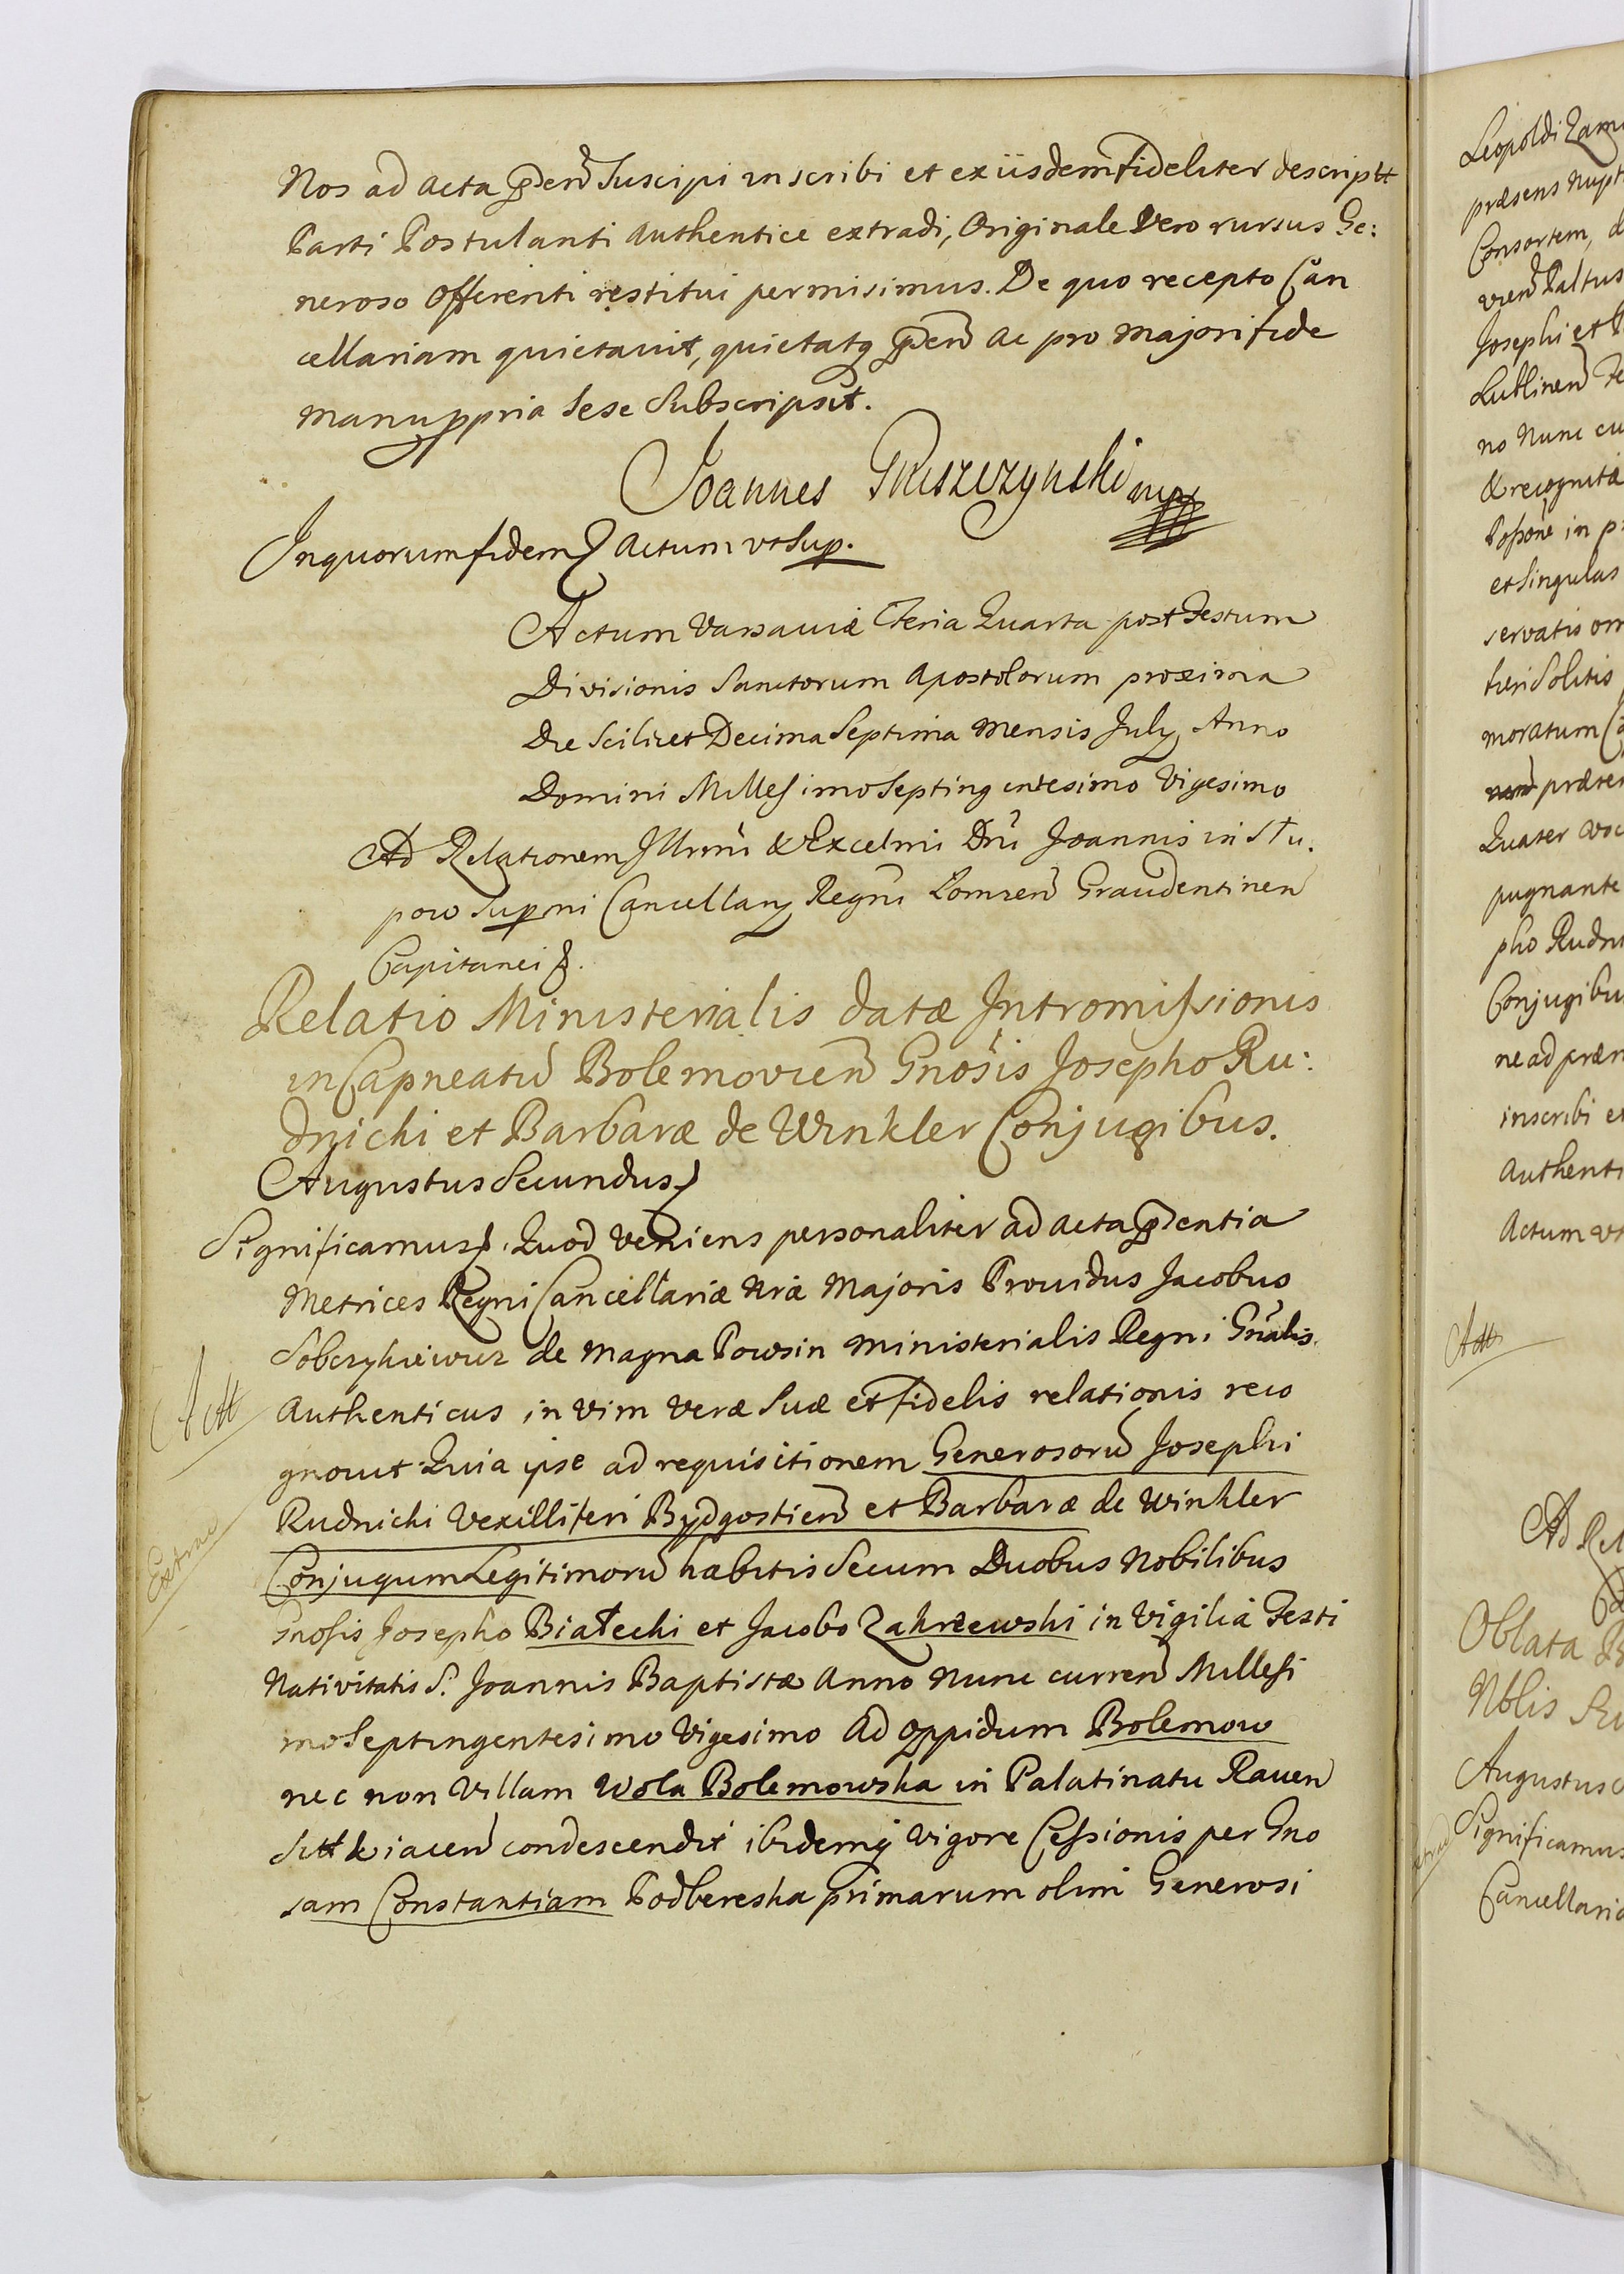 Nos ad acta p̃sen̄ Suscipi inscribi et ex iisdem fideliter descriptt
Parti Postulanti authentice extradi, Originale Vero rursus Ge:
neroso Offerenti restitui permisimus. De quo recepto Can
cellariam quietavit, quietatq p̃sen̄ ac pro majori fide
manu ppria Sese Subscripsit.
Joannes mp
In quorum fidem Actum ut Sup.
Actum Varsaviæ Feria Quarta post Festum
Divisionis Sanctorum Apostolorum proxima
Die Scilicet Decima Septima Mensis July Anno
Domini Millesimo Septingentesimo Vigesimo
Ad Relationem Illrmi & Excelmi Dni Joannis in Stu.
pow Supmi Cancellarÿ Regni Lomzen̄ Graudentinen̄
Capitanei &.
Relatio Ministerialis datæ Intromissionis
in Capneatū Bolemovien̄ Gnosis Josepho Ru:
dnicki et Barbaræ de Winkler Conjugibus.
Augustus Secundus
Significamus &. Quod Veniens personaliter ad acta p̃sentia
Metrices Regni Cancellariæ Nræ Majoris Providus Jacobus
de Magna Powsin Ministerialis Regni Gnalis
Authenticus in Vim Veræ Suæ et Fidelis relationis reco
gnovit Quia ipse ad requisitionem Generosorū Josephi
Rudnicki Vexilliferi Bydgostien̄ et Barbaræ de Winkler
Conjugum Legitimorū habitis Secum Duobus Nobilibus
Gnosis Josepho Białecki et Jacobo Zakrzewski in Vigilia Festi
Nativitatis S. Joannis Baptistæ Anno Nunc curren̄ Millesi
mo Septingentesimo Vigesimo ad Oppidum Bolemow
nec non Villam Wola Bolemowska in Palatinatu Raven̄
Sitt & iacen̄ condescendit ibidemq Vigore Cessionis per Gno
sam Constantiam Podbereska primarum olim Generosi
Actt
Extrad
Leopoldi Zam
præsens Nupt
Consortem, d
vien̄ Paltus
Josephi et
Lublinen̄ Te
no Nunc cu
& recognitæ
Possone in p
et Singulas
servatis om
Solitis
moratum
præsen
Quater Voc
pugnante
pho Rudni
Conjugibu
ne ad præm
inscribi et
Authenti
Actum ut
Actt
Ad Rel
Oblata
Nblis
Augustus
Significamus
Cancellaria